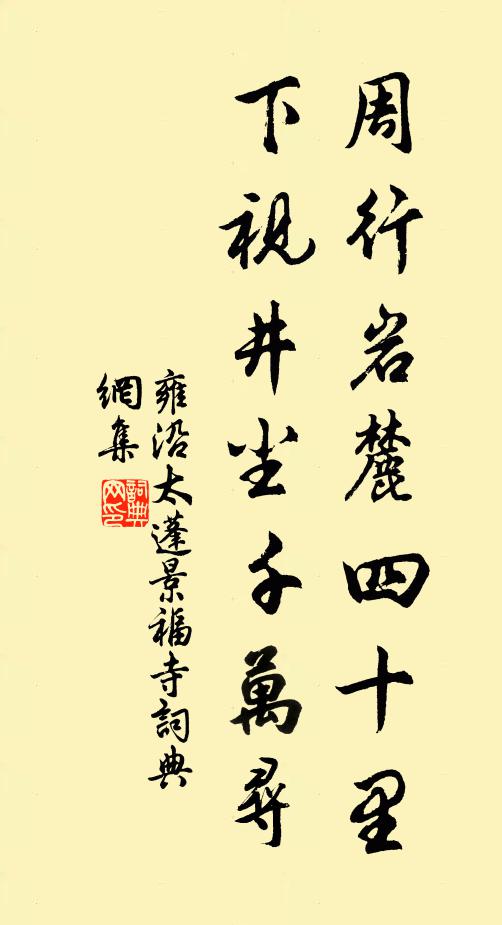 周行岩麓四十里
下視井尘千萬尋
雍沿太蓬景福寺詞典
網集
詞典
网印